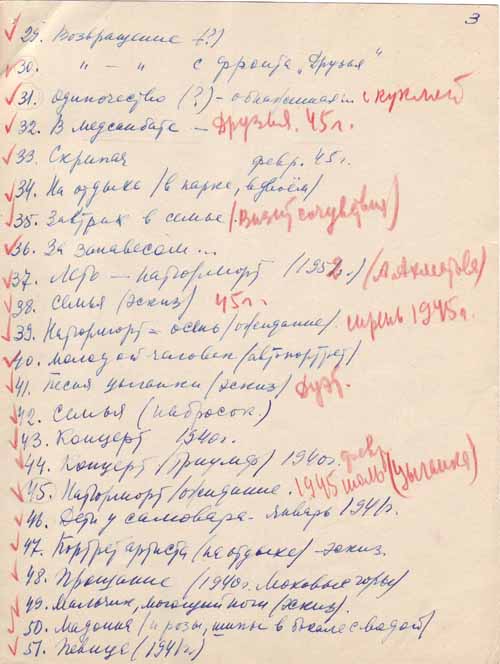 3
29. Возвращение (?)
30. " - " с фронта „Друзья"
31. Одиночество (?) - обнаженная... с куклой
32. В медсанбате - Друзья. 45 г.
33. Скрипач февр. 45 г.
34. На отдыхе (в парке, вдвоём)
35. Завтрак в семье (Визит сочувствия)
36. За занавесом...
37. Лето - натюрморт (1952) (А. Ахматова)
38. Семья (эскиз) 45 г.
39. Натюрморт - осень (ожидание). сирень 1945 г.
40. Молодой человек (автопортрет)
41. Песня цыганки (эскиз) Дуэт.
42. Семья (набросок.)
43. Концерт 1940 г.
44. Концерт (Триумф) 1940 г. февр
45. Натюрморт (ожидание. 1945 шаль (Цыганка)
46. Дети у самовара - январь 1941 г.
47. Портрет артиста (на отдыхе) - эскиз.
48. Прощание (1940 г. Моховые горы)
49. Мальчик, моющий ноги (эскиз).
50. Мадонна (и розы, шипы в бокале с водой)
51. Певица (1941 г.)